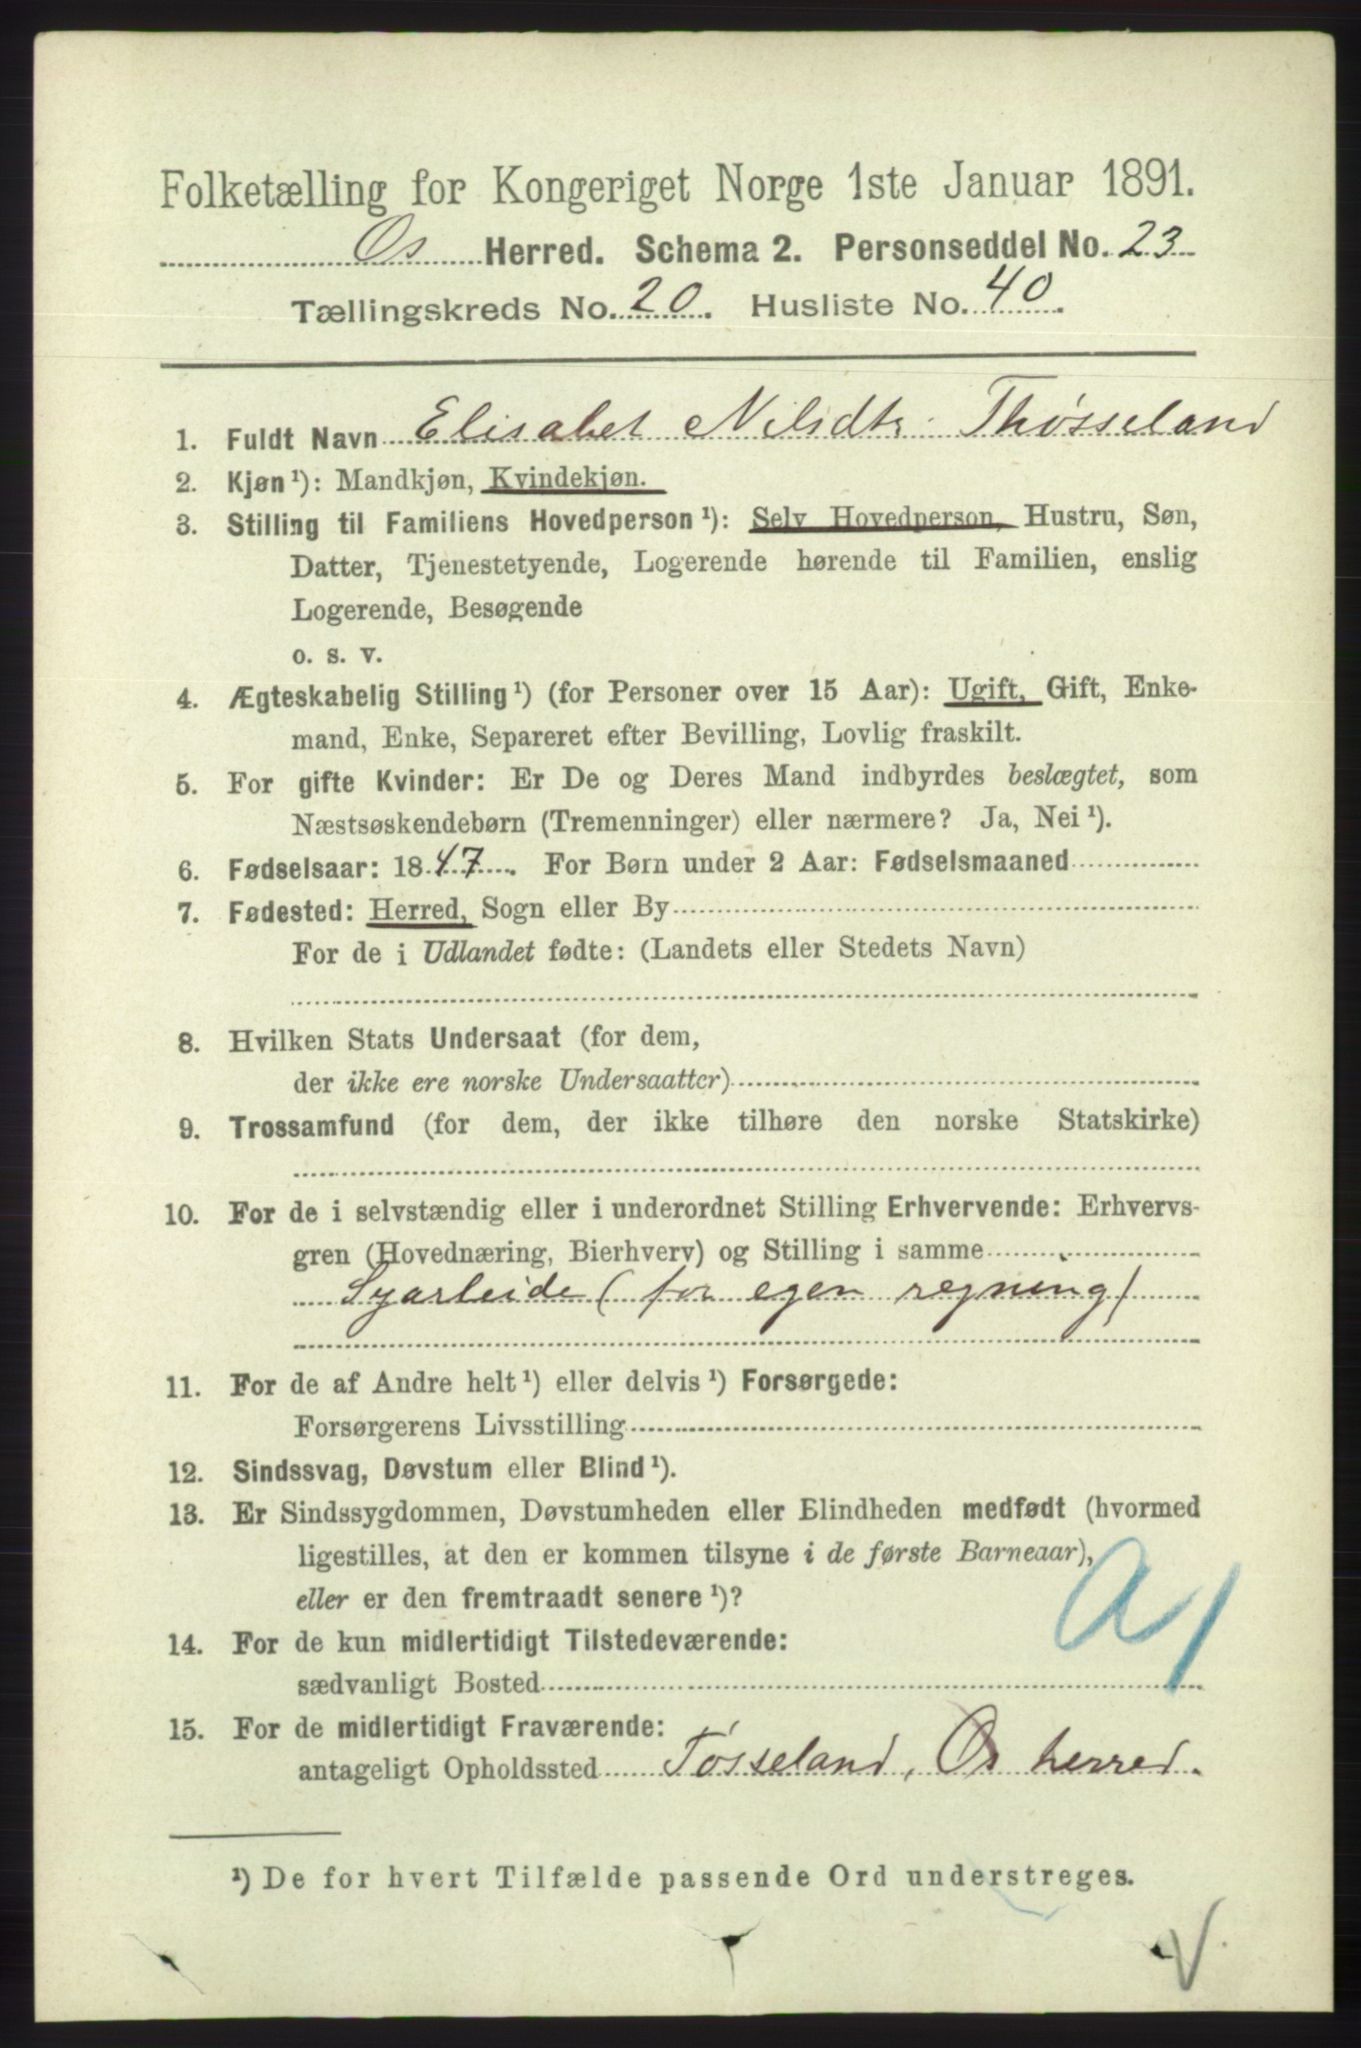 Folketælling for Kongeriget Norge 1ste Januar 1891.
Os Herred. Schema 2. Personseddel No. 23
Tællingskreds No. 20. Husliste No. 40.
1. Fuldt Navn Elisabet Nilsdtr Thøsseland
2. Kjøn ¹): Mandkjøn, Kvindekjøn.
3. Stilling til Familiens Hovedperson ¹): Selv Hovedperson, Hustru, Søn,
Datter, Tjenestetyende, Logerende hørende til Familien, enslig
Logerende, Besøgende
o. s. v.
4. Ægteskabelig Stilling ¹) (for Personer over 15 Aar): Ugift, Gift, Enke-
mand, Enke, Separeret efter Bevilling, Lovlig fraskilt.
5. For gifte Kvinder: Er De og Deres Mand indbyrdes beslægtet, som
Næstsøskendebørn (Tremenninger) eller nærmere? Ja, Nei ¹).
6. Fødselsaar: 1847. For Børn under 2 Aar: Fødselsmaaned
7. Fødested: Herred, Sogn eller By
For de i Udlandet fødte: (Landets eller Stedets Navn)
8. Hvilken Stats Undersaat (for dem,
der ikke ere norske Undersaatter)
9. Trossamfund (for dem, der ikke tilhøre den norske Statskirke)
10. For de i selvstændig eller i underordnet Stilling Erhvervende: Erhvervs-
gren (Hovednæring, Bierhverv) og Stilling i samme
Syarbeide (for egen regning)
11. For de af Andre helt ¹) eller delvis ¹) Forsørgede:
Forsørgerens Livsstilling
12. Sindssvag, Døvstum eller Blind ¹).
13. Er Sindssygdommen, Døvstumheden eller Blindheden medfødt (hvormed
ligestilles, at den er kommen tilsyne i de første Barneaar),
eller er den fremtraadt senere ¹)?
14. For de kun midlertidigt Tilstedeværende:
sædvanligt Bosted
a1
15. For de midlertidigt Fraværende:
antageligt Opholdssted Tøsseland, Os herred.
¹) De for hvert Tilfælde passende Ord understreges.
V